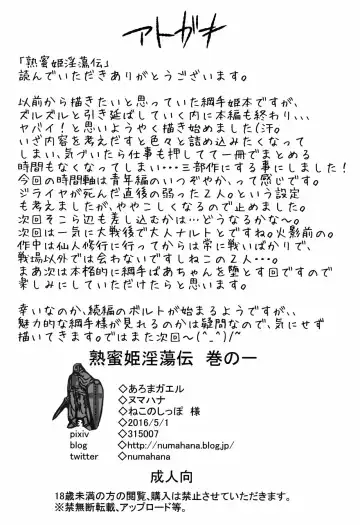 アトガキ
「熟蜜姫淫蕩伝」
読んでいただきありがとうございます。
以前から描きたいと思っていた綱手姫本ですが、
ズルズルと引き延ばしていく内に本編も終わり、、、
ヤバイ！と思いようやく描き始めました(汗。
いざ内容を考えだすと色々と詰め込みたくなって
しまい、気づいたら仕事も押してて一冊でまとめる
時間もなくなってしまい・・・三部作にする事にしました！
今回の時間軸は青年編のいつぞやか、って感じです。
ジライヤが死んだ直後の弱った2人。という設定
もありましたが、ややこしくなるので止めました。
次回そこら辺も差し込むかは…どうなるかな～。
次回は一気に大戦後で大人ナルトとですね。火影前の。
作中は仙人修行に行ってからは常に戦いばかりで、
戦場以外では会わないですしねこの2人・・・。
まあ次は本格的に綱手ばあちゃんを堕とす回ですので
楽しみにしていただけたらと思います。
幸いなのか、続編のボルトが始まるようですが、、
魅力的な綱手様が見れるのかは疑問なので、気にせず
描いてきます。ではまた次回～(^_^)/~
熟蜜姫淫蕩伝　巻の一
◇あろまガエル
◇ヌマハナ
◇ねこのしっぽ 様
◇2016/5/1
pixiv ◇315007
blog ◇http://numahana.blog.jp/
twitter ◇numahana
成人向
18歳未満の方の閲覧、購入は禁止させていただきます。
※禁無断転載、アップロード等。